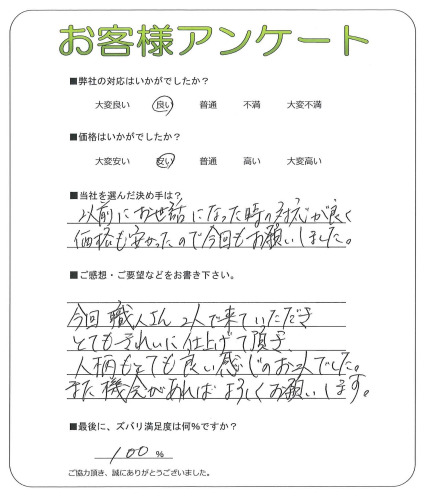 お客様アンケート
■弊社の対応はいかがでしたか？
大変良い 良い 普通 不満 大変不満
■価格はいかがでしたか？
大変安い 安い 普通 高い 大変高い
■当社を選んだ決め手は？
以前にお世話になった時の対応が良く
価格も安かったので今回もお願いしました。
■ご感想・ご要望などをお書き下さい。
今回職人さん2人で来ていただき
とてもきれいに仕上げて頂き、
人柄もとても良い感じのお二人でした。
また機会があればよろしくお願いします。
■最後に、ズバリ満足度は何％ですか？
100 ％
ご協力頂き、誠にありがとうございました。